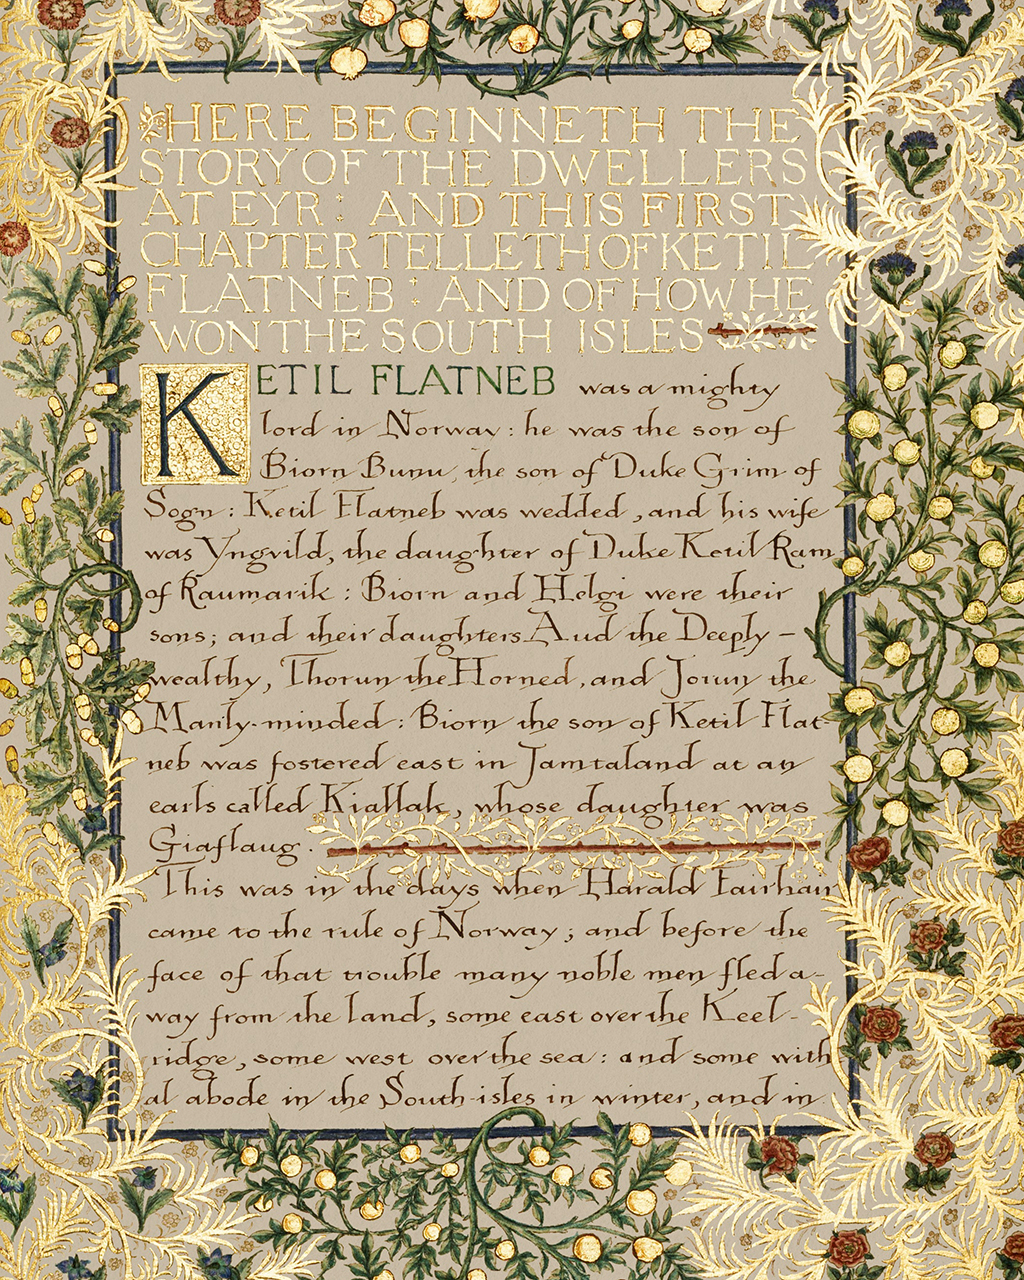 HERE BEGINNETH THE
STORY OF THE DWELLERS
AT EYR : AND THIS FIRST
CHAPTER TELLETH OF KETIL
FLATNEB : AND OF HOW HE
WON THE SOUTH ISLES
KETIL FLATNEB was a mighty
lord in Norway : he was the son of
Biorn Bunu, the son of Duke Grim of
Sogn : Ketil Flatneb was wedded , and his wife
was Yngvild, the daughter of Duke Ketil Ram
of Raumarik : Biorn and Helgi were their
sons; and their daughters Aud the Deeply -
wealthy, Thorun the Horned, and Jorun the
Manly-minded : Biorn the son of Ketil Flat
neb was fostered east in Jamtaland at an
earls called Kiallak, whose daughter was
Giaflaug .
This was in the days when Harald Fairhair
came to the rule of Norway ; and before the
face of that trouble many noble men fled a-
way from the land, some east over the Keel-
ridge, some west over the sea : and some with
al abode in the South-isles in winter, and in